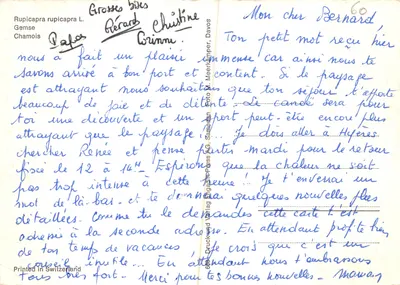 Rupicapra rupicapra L.
Gemse
Chamois
Grosses bises
Papa Gérard Christine
Corinne
60
Mon cher Bernard,
Ton petit mot reçu hier
nous a fait un plaisir immense car ainsi nous te
savons arrivé à bon port et content. Si le paysage
est attrayant nous souhaitons que ton séjour t'apporte
beaucoup de joie et de détente. Le canoë sera pour
toi une découverte et un sport peut-être encore plus
attrayant que le paysage!... Je dois aller à Hyères
chercher Renée et pense partir mardi pour le retour
fixé le 12 à 14H. Espérons que la chaleur ne soit
pas trop intense à cette heure!! Je t'enverrai un
mot de là-bas et te donnerai quelques nouvelles plus
détaillées. Comme tu le demandes cette carte t'est
adressée à la seconde adresse. En attendant profite bien
de ton temps de vacances, je crois que c'est un
conseil inutile... En attendant nous t'embrassons
tous bien fort. Merci pour tes bonnes nouvelles. Maman
Printed in Switzerland